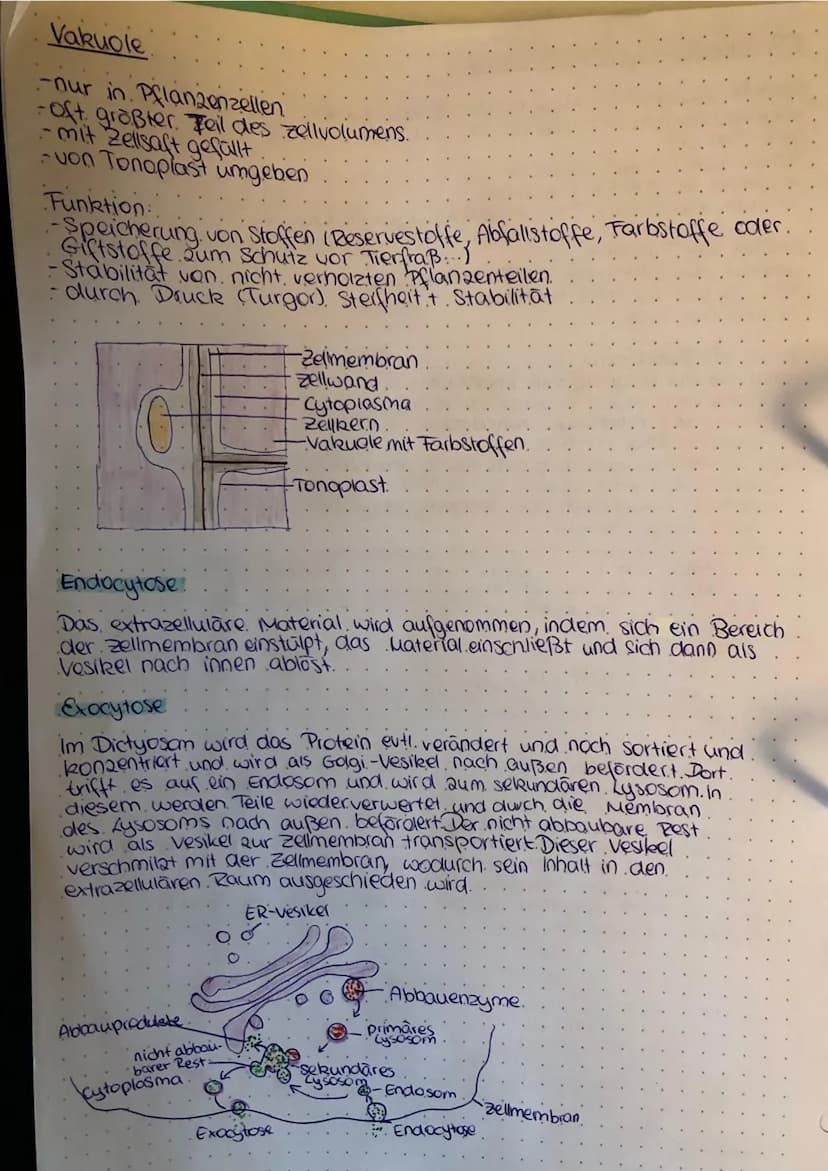 Vakuole
-nur in Pflanzenzellen
-oft größter Teil des Zellvolumens
-mit Zellsaft gefüllt
-von Tonoplast umgeben
Funktion:
-Speicherung von Stoffen (Reservestoffe, Abfallstoffe, Farbstoffe oder
Giftstoffe zum Schutz vor Tierfraß...)
-Stabilität von nicht verholzten Pflanzenteilen
-durch Druck (Turgor) Steifheit + Stabilität
Zellmembran
Zellwand
Cytoplasma
Zellkern
Vakuole mit Farbstoffen
Tonoplast
Endocytose
Das extrazelluläre Material wird aufgenommen, indem sich ein Bereich
der Zellmembran einstülpt, das Material einschließt und sich dann als
Vesikel nach innen ablöst.
Exocytose
Im Dictyosom wird das Protein evtl. verändert und noch sortiert und
konzentriert und wird als Golgi-Vesikel nach außen befördert. Dort
trifft es auf ein Endosom und wird zum sekundären Lysosom. In
diesem werden Teile wiederverwertet und durch die Membran
des Lysosoms nach außen befördert. Der nicht abbaubare Rest
wird als Vesikel zur Zellmembran transportiert. Dieser Vesikel
verschmilzt mit der Zellmembran, wodurch sein Inhalt in den
extrazellulären Raum ausgeschieden wird.
ER-Vesikel
Abbauenzyme
Abbauprodukte
primäres
Lysosom
nicht abbau-
barer Rest
sekundäres
Lysosom
Cytoplasma
Endosom
Zellmembran
Exocytose
Endocytose